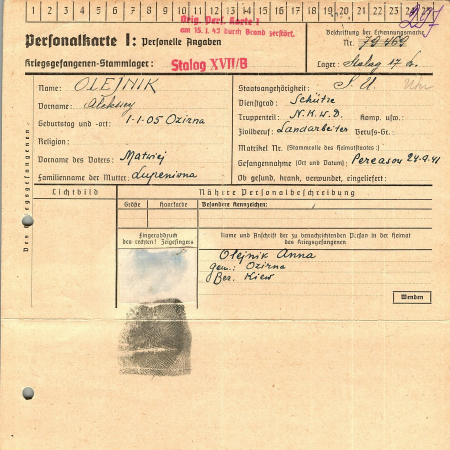 1 2 3 4 5 6 7 8 9 10 11 12 13 14 15 16 17 18 19 20 21 22 23 24 25
Orig. Pers. Karte I
am 15.1.43 durch Brand zerstört.
Personalkarte I: Personelle Angaben
Kriegsgefangenen-Stammlager: Stalag XVII/B
Beschriftung der Erkennungsmarke
Nr. 79469
Lager: Stalag 17 b.
Des Kriegsgefangenen
Name: OLEJNIK
Vorname: Aleksey
Geburtstag und -ort: 1.1.05 Ozirna
Religion:
Vorname des Vaters: Matwiej
Familienname der Mutter: Lupeniowna
Staatsangehörigkeit: S.U. Ukr
Dienstgrad: Schütze
Truppenteil: N.K.W.D. Komp. usw.:
Zivilberuf: Landarbeiter Berufs-Gr.
Matrikel Nr. (Stammrolle des Heimatstaates):
Gefangennahme (Ort und Datum): Pereasow 24.9.41
Ob gesund, krank, verwundet, eingeliefert:
Lichtbild
Nähere Personalbeschreibung
Größe Haarfarbe Besondere Kennzeichen:
Fingerabdruck
des rechten! Zeigefingers
Name und Anschrift der zu benachrichtigenden Person in der Heimat
des Kriegsgefangenen
Olejnik Anna
gem.: Ozirna
Bez. Kiew
Wenden